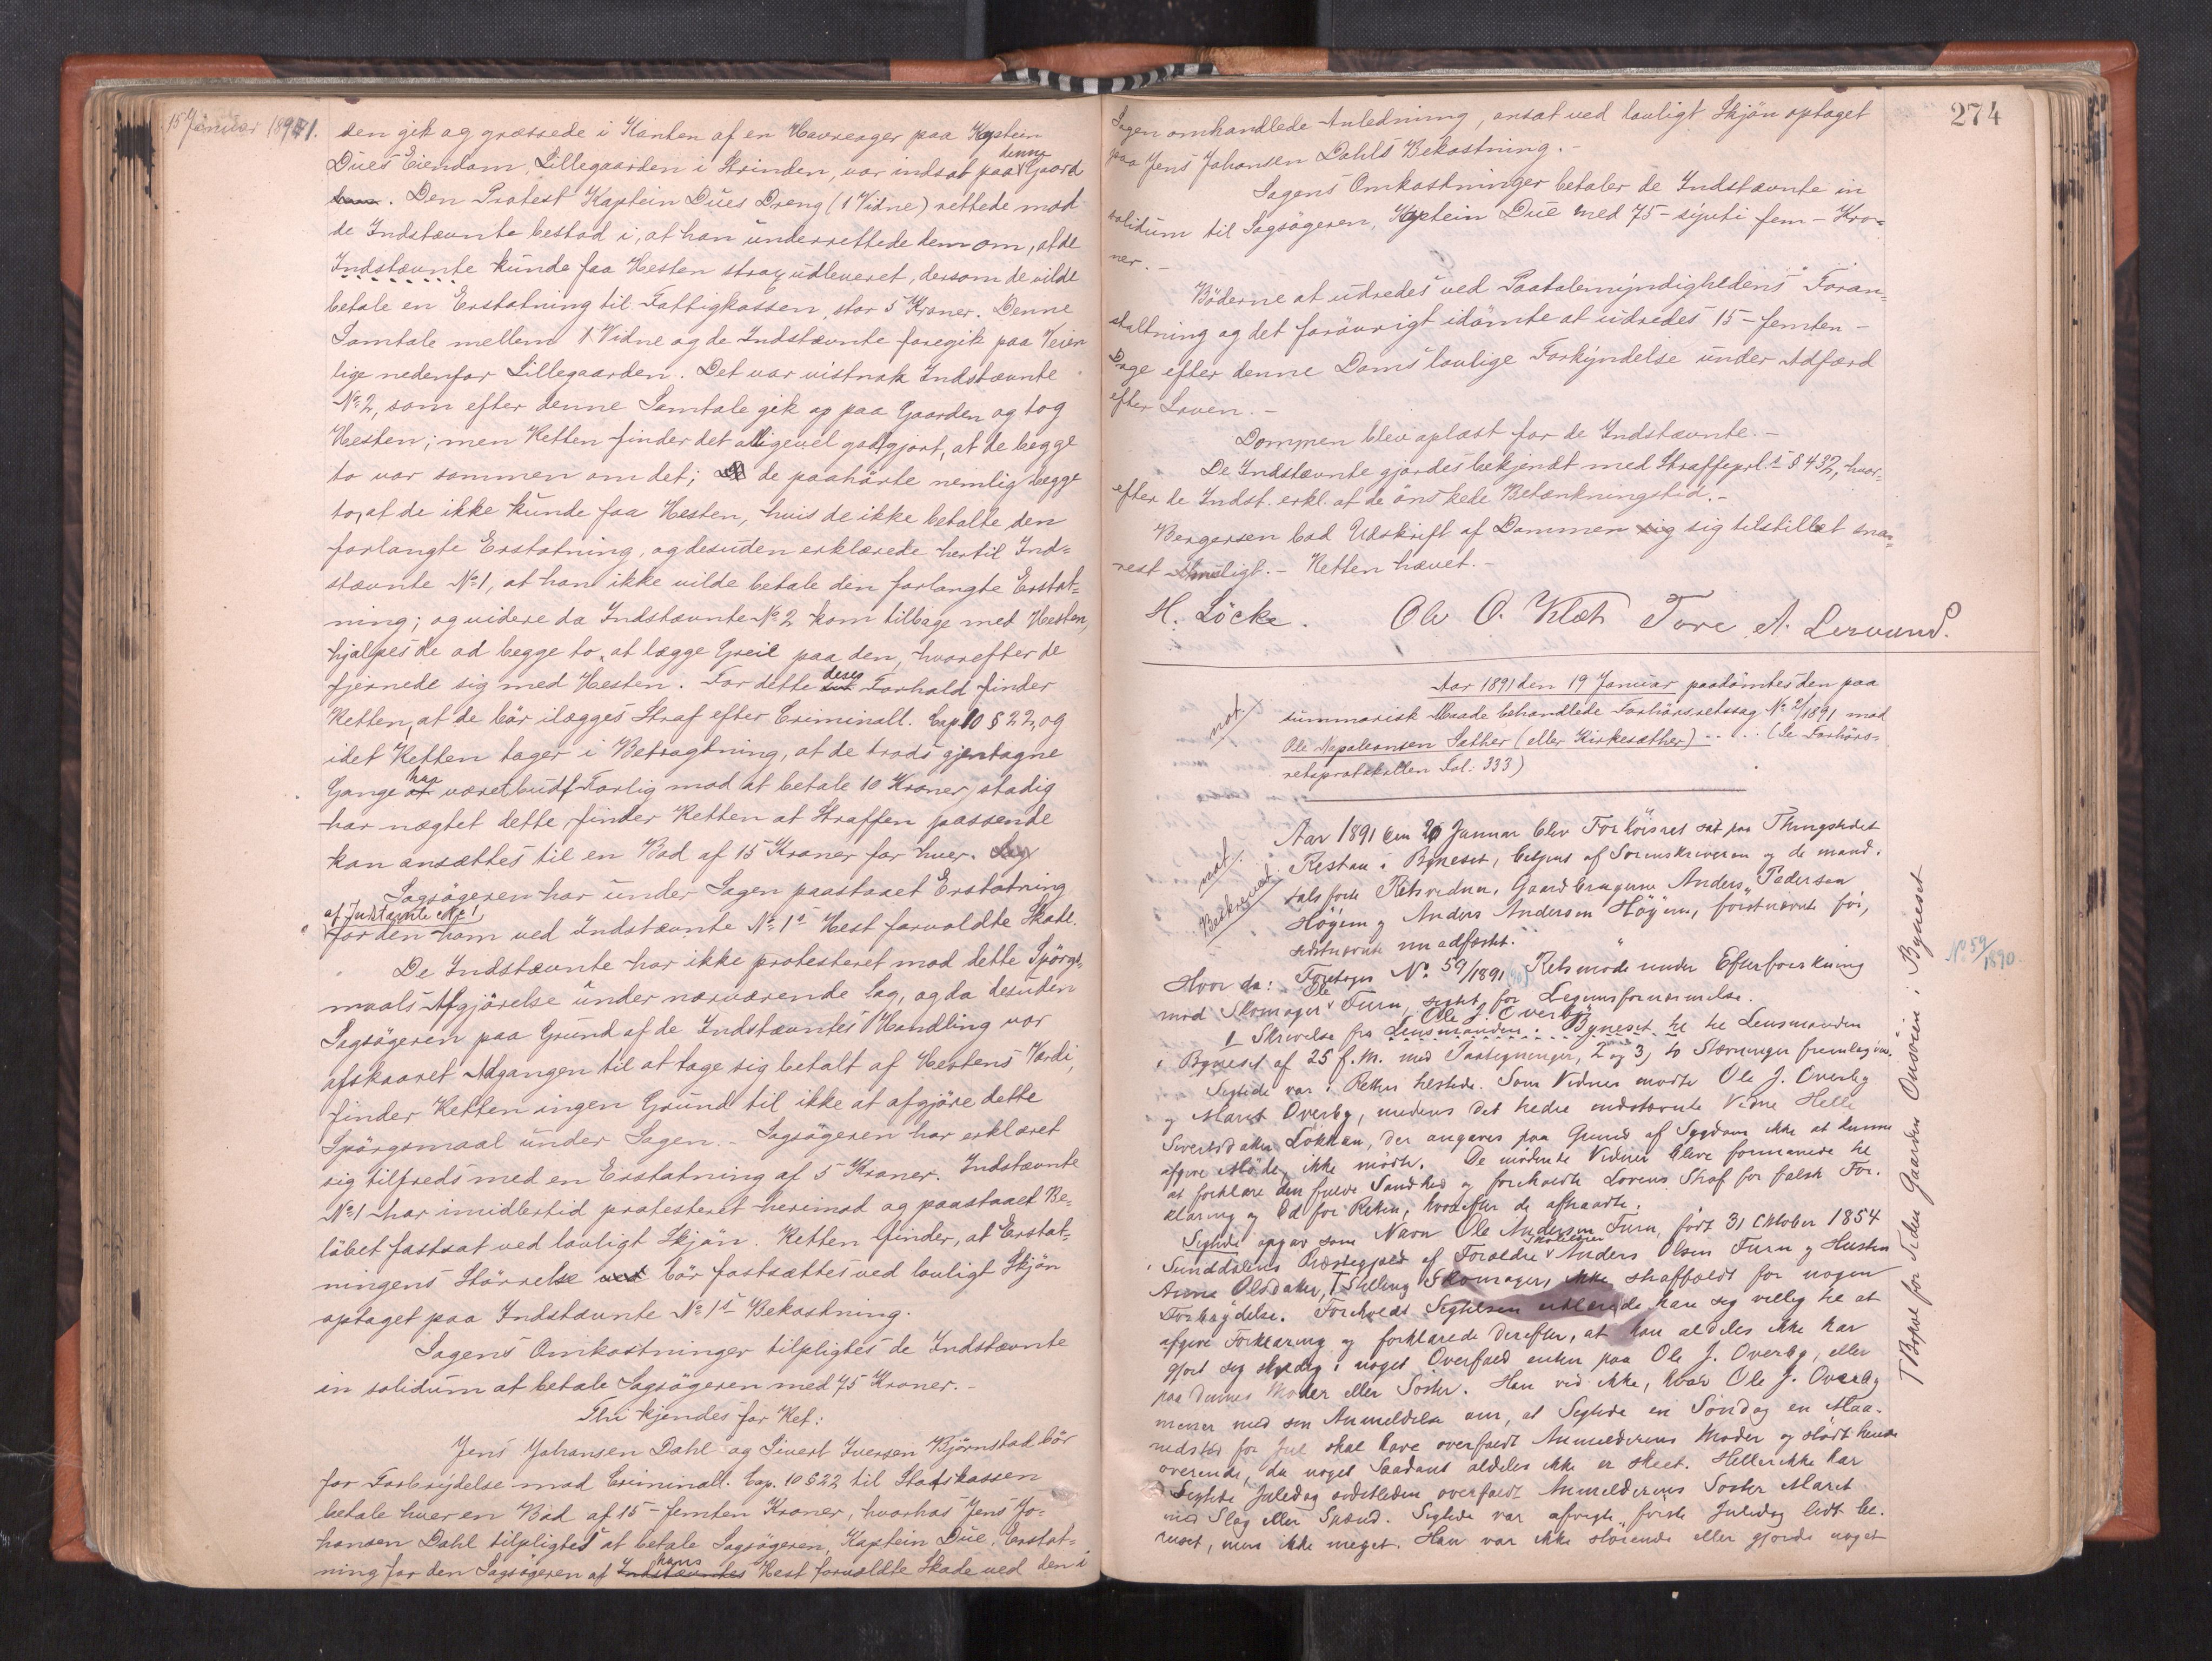 15 Januar 1891.
den gik og græssede i Kanten af en Havreager paa Kaptein
Dues Eiendom, Lillegaarden i Strinden, var indsat paa denne Gaard
. Den Protest Kaptein Dues Dreng (1 Vidne) rettede mod
de Indstævnte bestod i, at han underrettede dem om, at de
Indstævnte kunde faa Hesten strax udleveret, dersom de vilde
betale en Erstatning til Fattigkassen, stor 5 Kroner. Denne
Samtale mellem 1 Vidne og de Indstævnte foregik paa Veien
lige nedenfor Lillegaarden. Det var vistnok Indstævnte
No 2, som efter denne Samtale gik op paa Gaarden og tog
Hesten; men Retten finder det alligevel godtgjort, at de begge
to var sammen om det; de paahörte nemlig begge
to, at de ikke kunde faa Hesten, hvis de ikke betalte den
forlangte Erstatning, og desuden erklærede hertil Ind=
stævnte No 1, at han ikke vilde betale den forlangte Erstat=
ning; og videre da Indstævnte No 2 kom tilbage med Hesten,
hjalpes de ad begge to, at lægge Greie paa den, hvorefter de
fjernede sig med Hesten. For dette deres Forhold finder
Retten, at de bör ilægges Straf efter Criminall. Cap 10 § 22, og
idet Retten tager i Betragtning, at de trods gjentagne
Gange har været budt Forlig mod at betale 10 Kroner, stadig
har nægtet dette, finder Retten at Straffen passende
kan ansættes til en Bod af 15 Kroner for hver.
Sagsögeren har under Sagen paastaaet Erstatning
af Indstævnte No 1
for den ham ved Indstævnte No 1s Hest forvoldte Skade.
De Indstævnte har ikke protesteret mod dette Spörgs=
maals Afgjörelse under nærværende Sag, og da desuden
Sagsögeren paa Grund af de Indstævntes Handling var
afskaaret Adgangen til at tage sig betalt af Hestens Værdi,
finder Retten ingen Grund til ikke at afgjöre dette
Spörgsmaal under Sagen. - Sagsögeren har erklæret
sig tilfreds med en Erstatning af 5 Kroner. Indstævnte
No 1 har imidlertid protesteret herimod og paastaaet Be=
löbet fastsat ved lovligt Skjön. Retten finder, at Erstat=
ningens Störrelse bör fastsættes ved lovligt Skjön
optaget paa Indstævnte No 1s Bekostning.
Sagens Omkostninger tilpligtes de Indstævnte
in solidum at betale Sagsögeren med 75 Kroner. -
Thi kjendes for Ret:
Jens Johansen Dahl og Sivert Iversen Björnstad bör
for Forbrydelse mod Criminall. Cap. 10 § 22 til Statskassen
betale hver en Bod af 15 - femten Kroner, hvorhos Jens Jo=
hansen Dahl tilpligtes at betale Sagsögeren, Kaptein Due, Erstat=
ning for den Sagsögeren af hans Hest forvoldte Skade ved den i
274
Sagen omhandlede Anledning, ansat ved lovligt Skjön optaget
paa Jens Johansen Dahls Bekostning. -
Sagens Omkostninger betaler de Indstævnte in
solidum til Sagsögeren, Kaptein Due med 75 - sýtti fem - Kro=
ner. -
Böderne at udredes ved Paatalemyndighedens Foran=
staltning og det forövrigt idömte at udredes 15 - femten -
Dage efter denne Doms lovlige Forkyndelse under Adfærd
efter Loven. -
Dommen blev oplæst for de Indstævnte. -
De Indstævnte gjordes bekjendt med Straffeprl.s § 432, hvor=
efter de Indst. erkl. at de önskede Betænkningstid. -
Bergersen bad Udskrift af Dommen sig tilstillet sna=
rest muligt. - Retten hævet. -
H. Löcke. Ole O. Klæth Tore A. Lervund.
not.
Aar 1891 den 19 Januar paadömtes den paa
summarisk Maade behandlede Forhörsretssag No 2/1891 mod
Ole Napoleonsen Sæther (eller Kirkesæther) . . . . (Se Forhörs=
retsprotokollen Fol: 333)
not.
Beskrevet.
Aar 1891 den 20 Januar blev Forhörsret sat paa Thingstedet
Restan i Bynesset, betjent af Sorenskriveren og de mand.
talsforte Retsvidner, Gaardbrugerne Anders Pedersen
Höyem og Anders Andersen Höyem, förstnævnte för,
sidstnævnte nu edfæstet.
Hvor da: Foretoges No. 59/1891 Retsmöde under Efterforskning
mod Skomager Ole Furu, sigtet for Legemsfornærmelse.
No. 59/1890
Ole J. Overby
1 Skrivelse fra Lensmanden i Bynesset til Lensmanden
i Bynesset af 25 f. M. med Paategninger, 2 og 3, to Stævninger fremlagdes.
Sigtede var i Retten tilstede. Som Vidner mödte Ole J. Overby
og Maret Overby, medens det tredie indstævnte Vidne Helle
Sivertsdatter Løkkan, der angaves paa Grund af Sygdom ikke at kunne
afgive Möde, ikke mödte. De mödende Vidner bleve formanede til
at forklare den fulde Sandhed og foreholdt Lovens Straf for falsk For.
klaring og Ed for Retten, hvorefter de aftraadte.
Sigtede opgav som Navn Ole Andersen Furu, født 31 Oktober 1854
i Sunddalens Præstegjæld af Forældre Skolelærer Anders Olsen Furu og Hustru
Anne Olsdatter, Stilling Skomager, ikke straffældt for nogen
Forbrydelse. Foreholdt Sigtelsen erklærede han sig villig til at
afgive Forklaring og forklarede derefter, at han aldeles ikke har
gjort sig skyldig i noget Overfald enten paa Ole J. Overby, eller
paa dennes Moder eller Söster. Han ved ikke, hvad Ole J. Overby
mener med sin Anmeldelse om, at Sigtede en Söndag en Maa-
nedstid för Jul skal have overfaldt Anmelderens Moder og stödt hende
overende, da noget Saadant aldeles ikke er skeet. Heller ikke har
Sigtede Juledag sidstleden overfaldt Anmelderens Soster Maret
med Slag eller Spænd. Sigtede var afvigte förste Juledag lidt be-
ruset, men ikke meget. Han var ikke störende eller gjorde noget
T Bopæl for Tiden Gaarden Onsöien i Bynesset